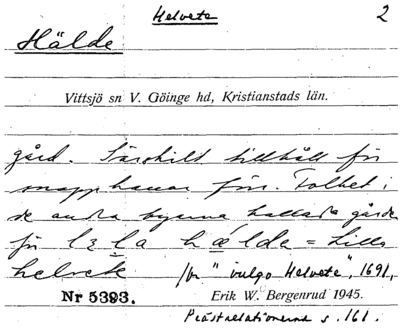 Helvete 2
Hälde
Vittsjö sn V. Göinge hd, Kristianstads län.
gård. Särskilt tillhåll för
snapphanar förr. Folket i
de andra byarna kallade gården
för lɛla hælde = Lilla
helvete /jfr "vulgo Helvete", 1691,
Nr 5393. Erik W. Bergenrud 1945.
Prästrelationerna s. 161.